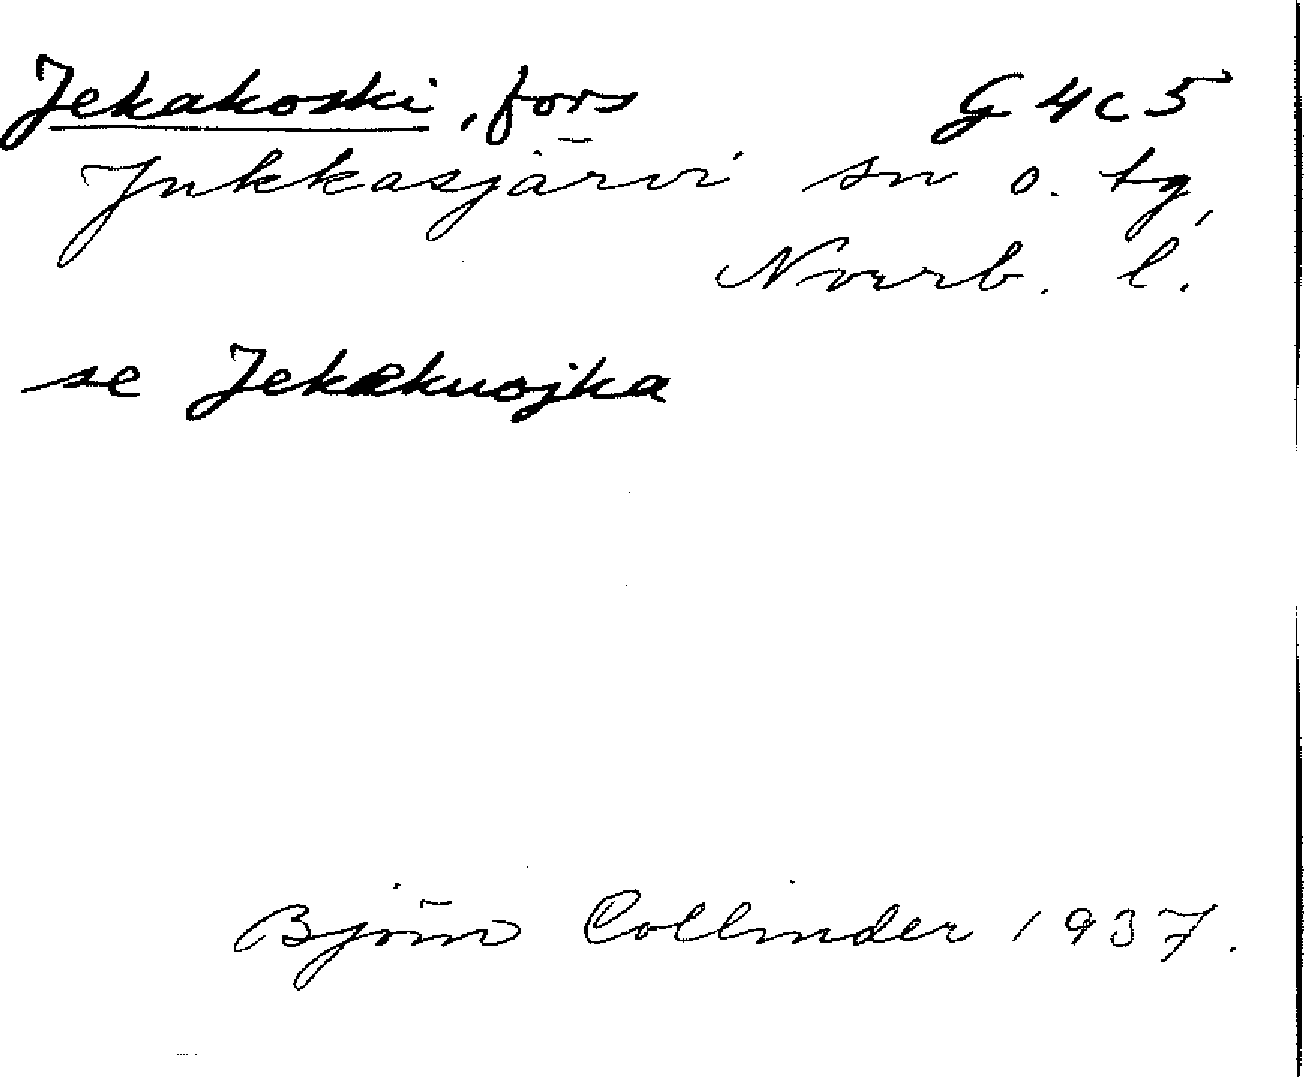 Jekakoski, fors G 4c5
Jukkasjärvi sn o. tg,
Norrb. l.
se Jekakuojka
Björn Collinder 1937.